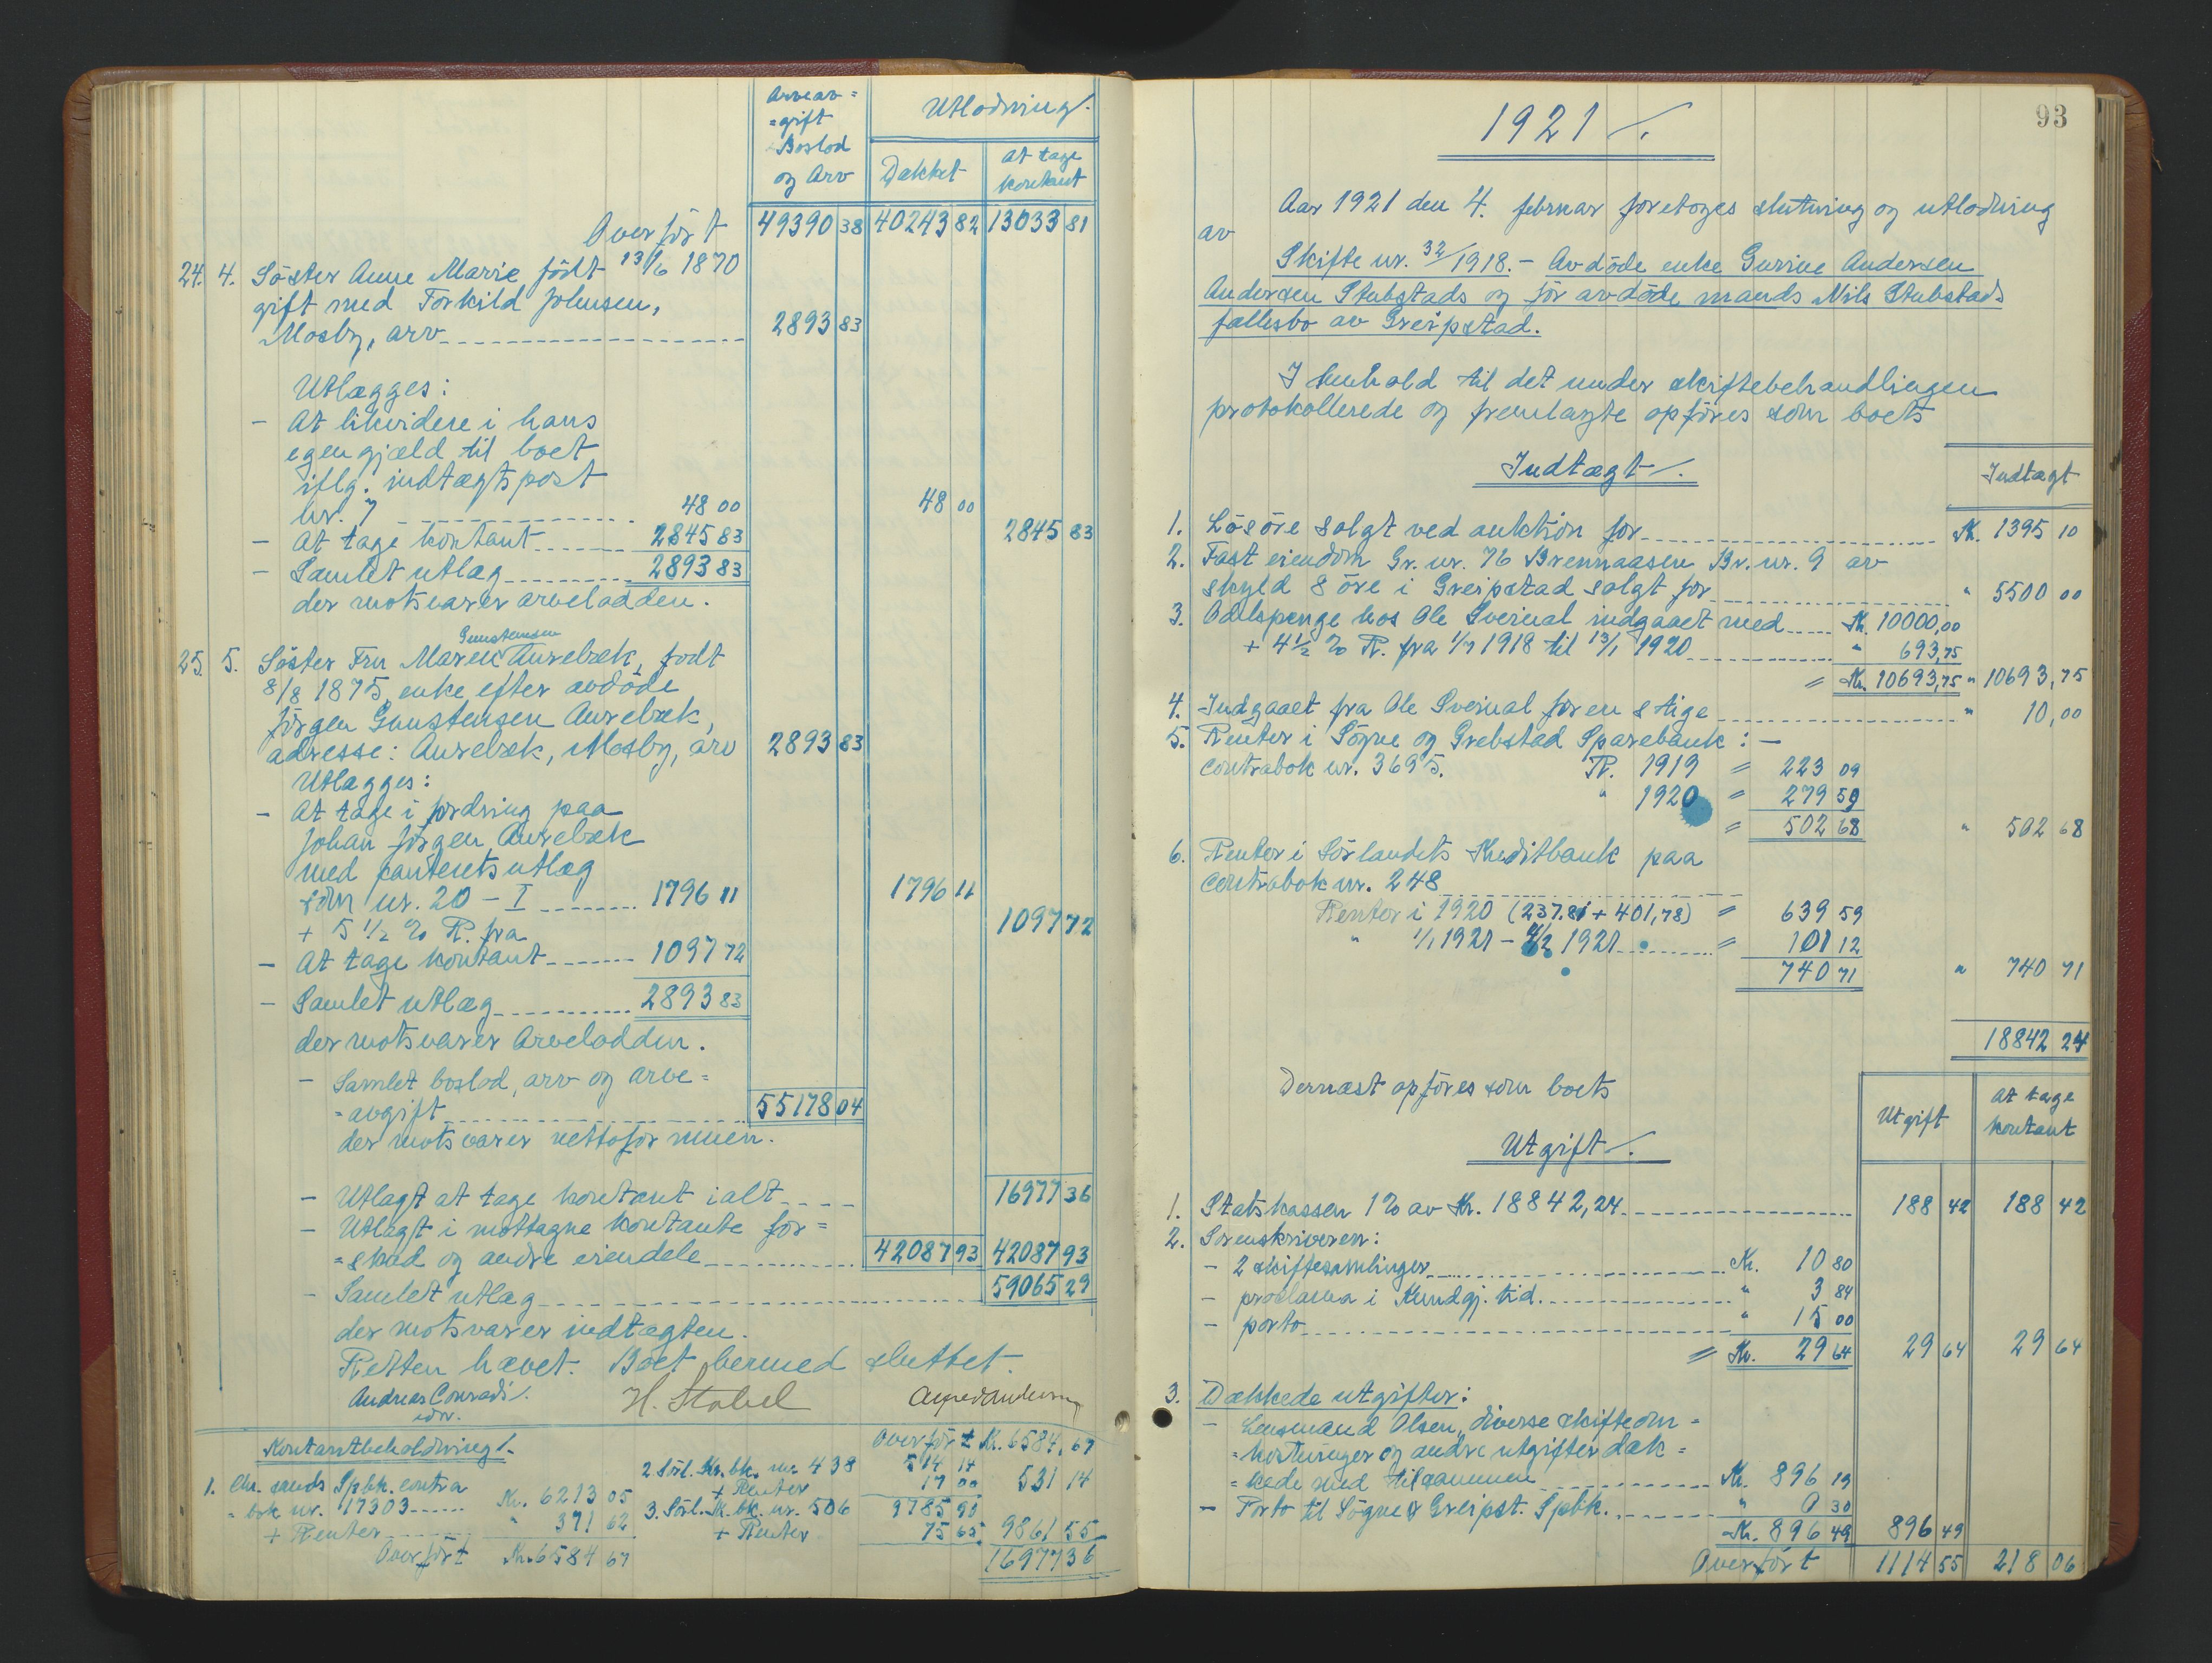 Arveav=
=gift
Boslod
og Arv
Utlodning.
Dækket
At tage
kontant
Overført 49390 38 40243 82 13033 81
24. 4. Søster Anne Marie født 13/6 1870
gift med Torkild Johnsen,
Mosby, arv 2893 83
Utlægges:
- At likvidere i hans
egen gjæld til boet
iflg. indtægtspost
nr. 7 48 00 48 00
- At tage kontant 2845 83 2845 83
- Samlet utlæg 2893 83
der motsvarer arvelodden.
25. 5. Søster Fru Maren Gunstensen Aurebæk, født
8/8 1875, enke efter avdøde
Jørgen Gunstensen Aurebæk,
adresse: Aurebæk, Mosby, arv 2893 83
Utlægges:
- At tage i fordring paa
Johan Jørgen Aurebæk
med panterets utlæg
som nr. 20 - I 1796 11 1796 11
+ 5 1/2 % R. fra
- At tage kontant 1097 72 1097 72
- Samlet utlæg 2893 83
der motsvarer Arvelodden.
- Samlet boslod, arv og arve=
=avgift 55178 04
der motsvarer nettoformuen.
- Utlagt at tage kontant ialt 16977 36
- Utlagt i mottagne kontante for=
=skud og andre eiendele 42087 93 42087 93
- Samlet utlæg 59065 29
der motsvarer indtægten.
Retten hævet. Boet hermed sluttet.
Andreas Conradi.
H. Stabel
Kontantbeholdning/.
1. Chr. sands Spbk. contra
=bok nr. 17303 Kr. 6213 05
+ Renter " 371 62
Overført Kr. 6584 67
Overført Kr. 6584,67
2. Sørl. Kr. bk. nr. 438 514 14
+ Renter 17 00 531 14
3. Sørl. Kr. bk. nr. 506 9785 90
+ Renter 75 65 9861 55
16977 36
93
1921/.
Aar 1921 den 4. februar foretoges slutning og utlodning
av
Skifte nr. 32/1918. - Avdøde enke Gurine Andersen
Andersen Stubstads og før avdøde mands Nils Stubstads
fællesbo av Greipstad.
I henhold til det under skiftebehandlingen
protokollerede og fremlagte opføres som boets
Indtægt/.
Indtægt
1. Løsøre solgt ved auktion for Kr. 1395 10
2. Fast eiendom Gr. nr. 76 Brennaasen Br. nr. 9 av
skyld 8 øre i Greipstad solgt for " 5500 00
3. Odelspenge hos Ole Sveinal indgaaet med Kr. 10000,00
+ 4 1/2 % R. fra 1/7 1918 til 13/1 1920 " 693,75
= Kr. 10693,75 " 10693,75
4. Indgaaet fra Ole Sveinal for en stige " 10,00
5. Renter i Søgne og Grebstad Sparebank : -
contrabok nr. 3695. R. 1919 = 223 09
" 1920 = 279 59
= 502 68 " 502 68
6. Renter i Sørlandets Kreditbank paa
contrabok nr. 248
Renter i 1920 (237.81 + 401,78) = 639 59
" 1/1 1921 - 4/2 1921 = 101 12
740 71 " 740 71
18842 24
Dernæst opføres som boets
Utgift/.
Utgift
At tage
kontant
1. Statskassen 1 % av Kr. 18842,24 188 42 188 42
2. Sorenskriveren:
- 2 skiftesamlinger Kr. 10 80
- proclama i Kundgj. tid. " 3 84
- porto " 15 00
= Kr. 29 64 29 64 29 64
3. Dækkede utgifter:
- Lensmand Olsen, diverse skifteom=
=kostninger og andre utgifter dæk=
=kede med tilsammen Kr. 896 19
- Porto til Søgne & Greipst. Spbk. " 0 30
Kr. 896 49 896 49
Overført 1114 55 218 06